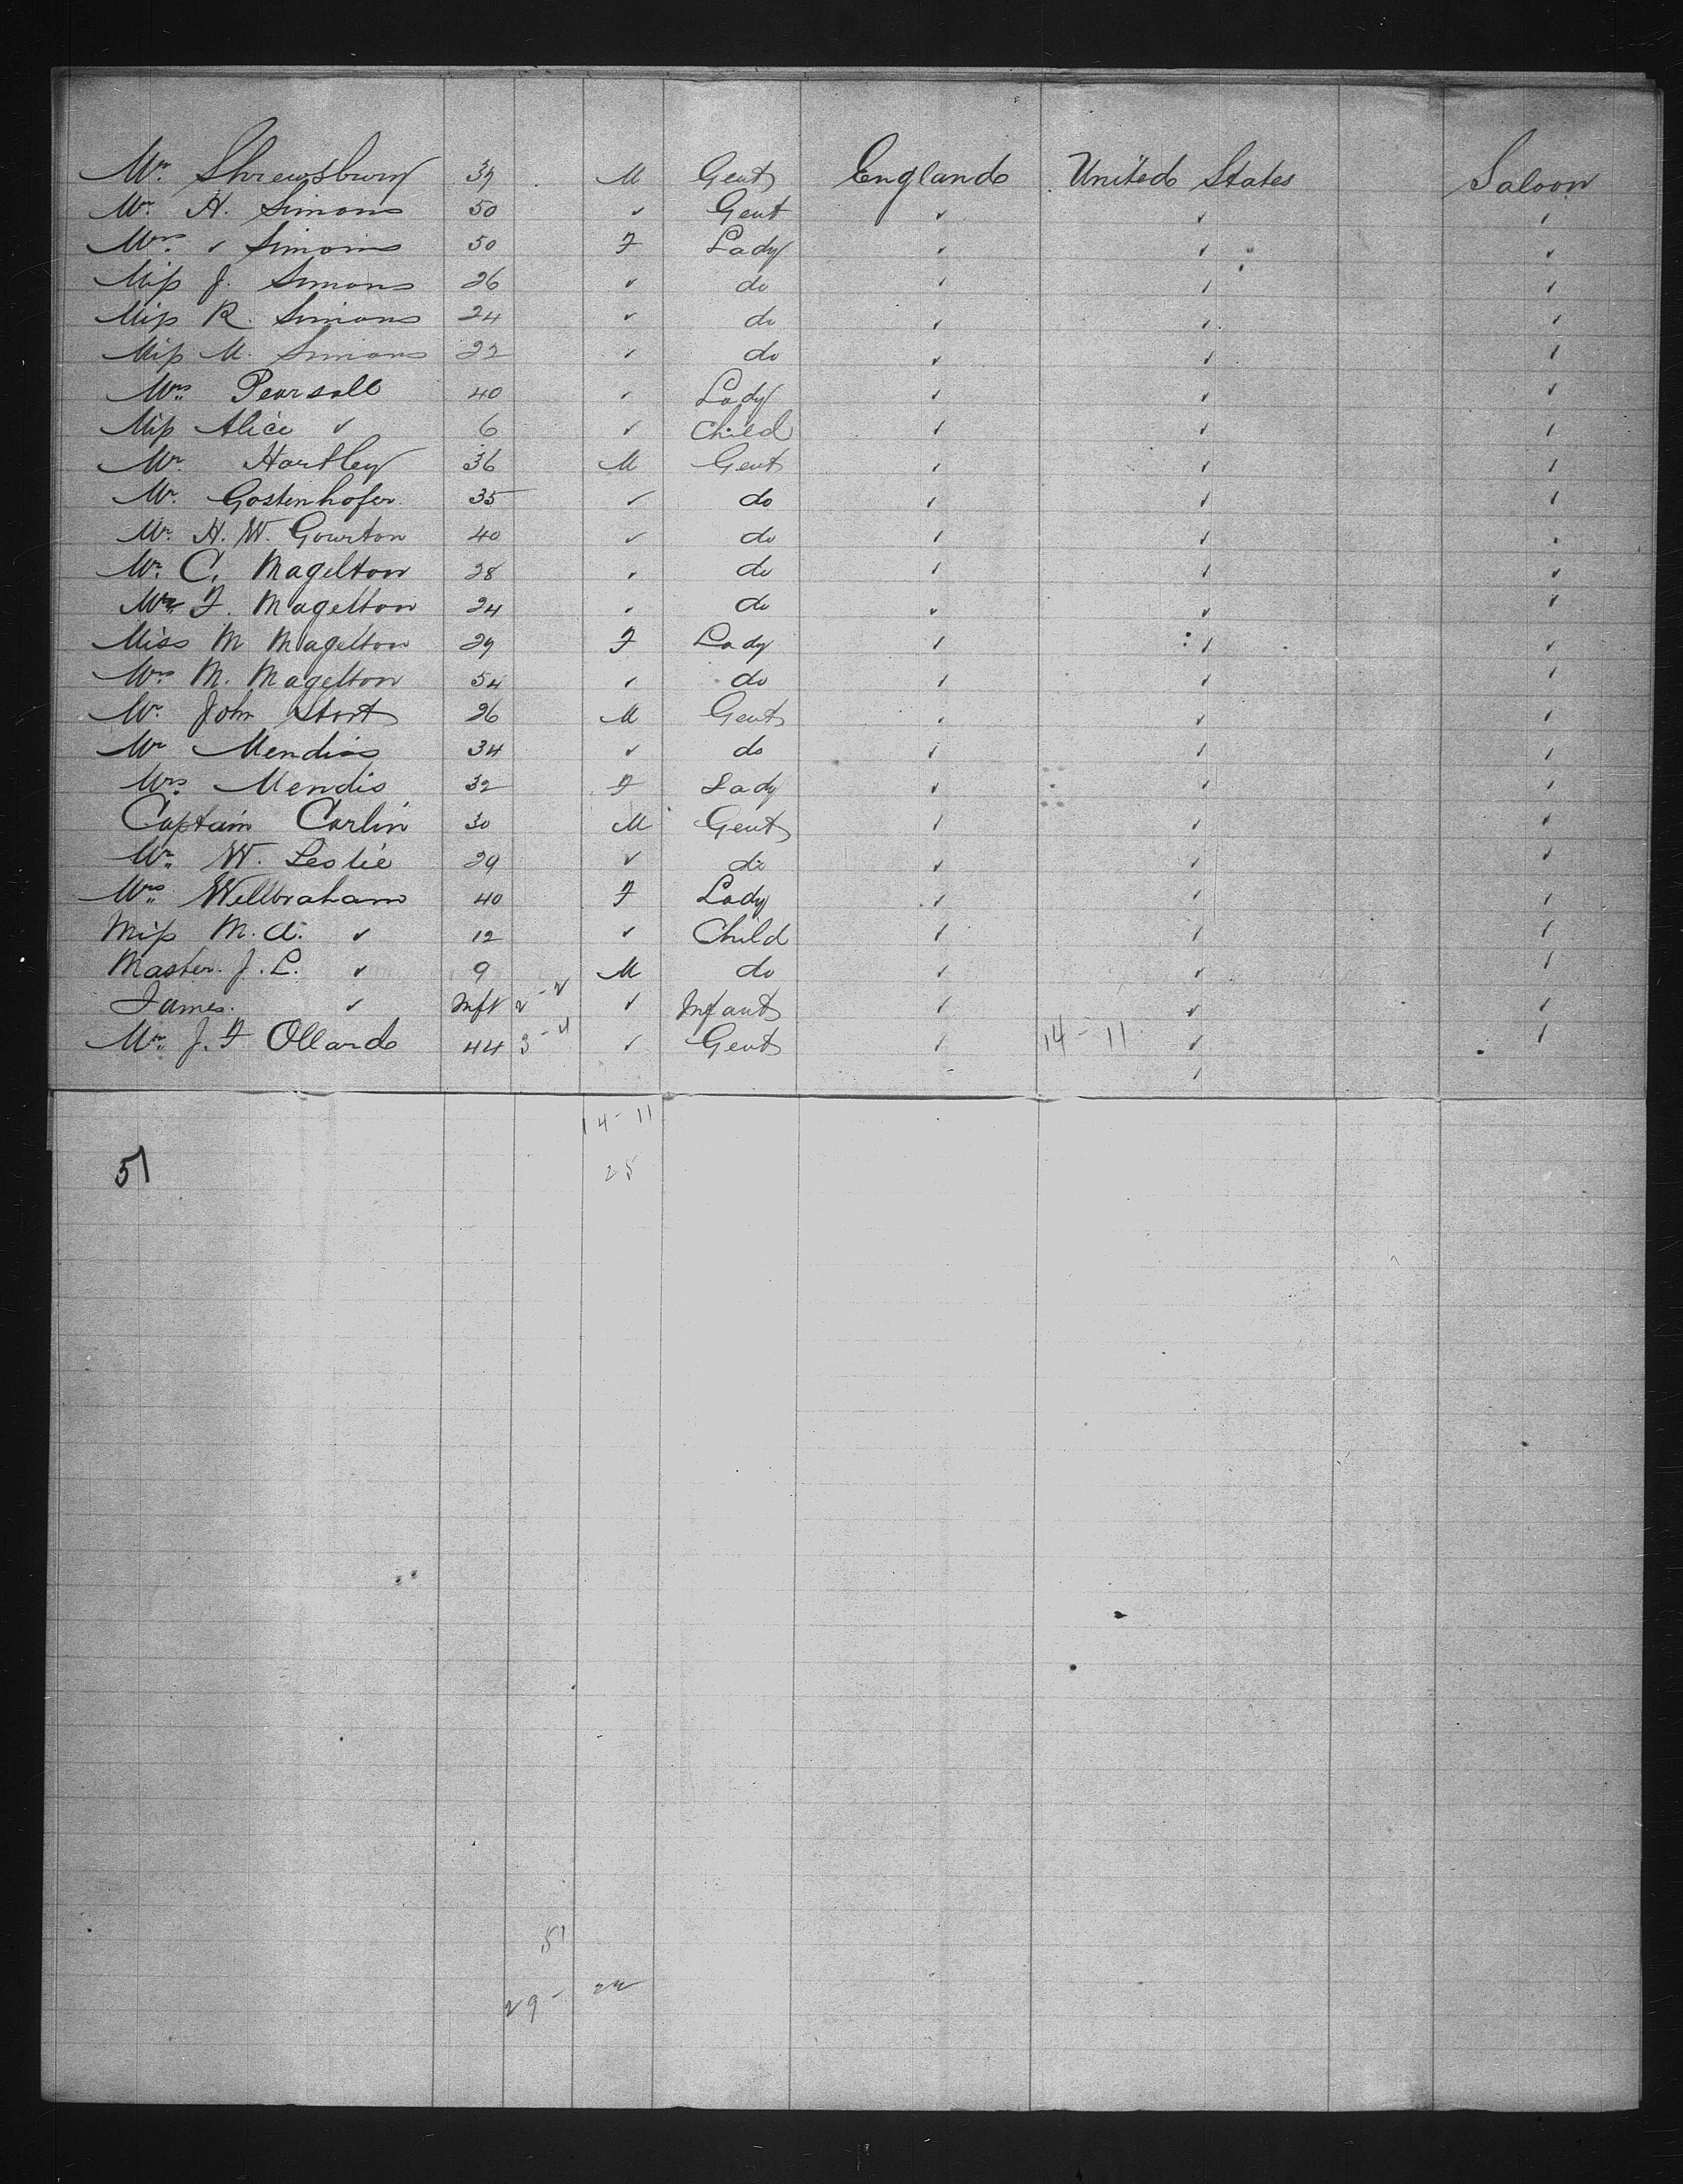 Mr. Shrewsbury 39 M Gent England United States Saloon
Mr. H. Simons 50 ✓ Gent ✓ ✓ ✓
Mrs. ✓ Simons 50 F Lady ✓ ✓ ✓
Miss J. Simons 26 ✓ do ✓ ✓ ✓
Miss R. Simons 24 ✓ do ✓ ✓ ✓
Miss M. Simons 22 ✓ do ✓ ✓ ✓
Mrs. Pearsall 40 ✓ Lady ✓ ✓ ✓
Miss Alice ✓ 6 ✓ Child ✓ ✓ ✓
Mr. Hartley 36 M Gent ✓ ✓ ✓
Mr. Gostenhofer 35 ✓ do ✓ ✓ ✓
Mr. H. W. Gourton 40 ✓ do ✓ ✓ ✓
Mr. C. Magelton 28 ✓ do ✓ ✓ ✓
Mr. F. Magelton 24 ✓ do ✓ ✓ ✓
Miss M Magelton 29 F Lady ✓ ✓ ✓
Mrs M. Magelton 54 ✓ do ✓ ✓ ✓
Mr. John Stort 26 M Gent ✓ ✓ ✓
Mr Mendis 34 ✓ do ✓ ✓ ✓
Mrs. Mendis 32 F Lady ✓ ✓ ✓
Captain Carlin 30 M Gent ✓ ✓ ✓
Mr. W. Leslie 29 ✓ do ✓ ✓ ✓
Mrs. Wellbraham 40 F Lady ✓ ✓ ✓
Miss M. A. ✓ 12 ✓ Child ✓ ✓ ✓
Master. J. L. ✓ 9 M do ✓ ✓ ✓
James. ✓ Inft 2-2 ✓ Infant ✓ ✓ ✓
Mr. J. F Ollard 44 3-4 ✓ Gent ✓ 14-11 ✓ ✓
14-11
51 25
51
29- 22